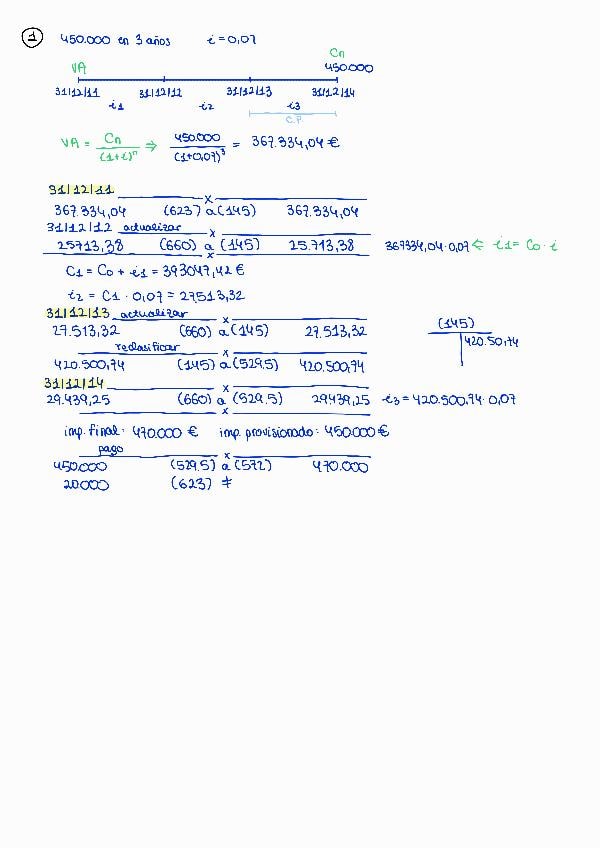 1 450.000 en 3 años i = 0,07
Cn
VA 450.000
31/12/11 31/12/12 31/12/13 31/12/14
i1 i2 i3
C.P.
VA = Cn/(1+i)^n ⇒ 450.000/(1+0,07)^3 = 367.334,04 €
31/12/11 x
367.334,04 (623) a (145) 367.334,04
31/12/12 actualizar x
25713,38 (660) a (145) 25.713,38 367334,04·0,07 ⇐ i1 = C0 · i
x
C1 = C0 + i1 = 393047,42 €
i2 = C1 · 0,07 = 27513,32
31/12/13 actualizar x
27.513,32 (660) a (145) 27.513,32
reclasificar x
420.500,74 (145) a (529.5) 420.500,74
(145)
420.50,74
31/12/14 x
29.439,25 (660) a (529.5) 29439,25 i3 = 420.500,74·0,07
x
imp. final: 470.000 € imp. provisionado: 450.000 €
pago x
450.000 (529.5) a (572) 470.000
20000 (623) ≠